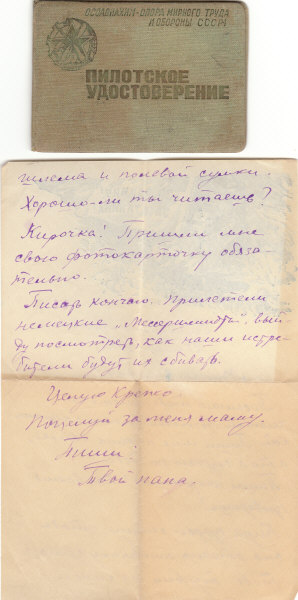 ОСОАВИАХИМ-ОПОРА МИРНОГО ТРУДА
И ОБОРОНЫ СССР!
ПИЛОТСКОЕ
УДОСТОВЕРЕНИЕ
шлема и полевой сумки.
Хорошо-ли ты читаешь?
Кирочка! Пришли мне
свою фотокарточку обяза-
тельно.
Писать кончаю. Прилетели
немецкие „Мессершмидты", вый-
ду посмотреть, как наши истре-
бители будут их сбивать.
Целую Крепко
Поцелуй за меня маму.
Пиши!
Твой папа.